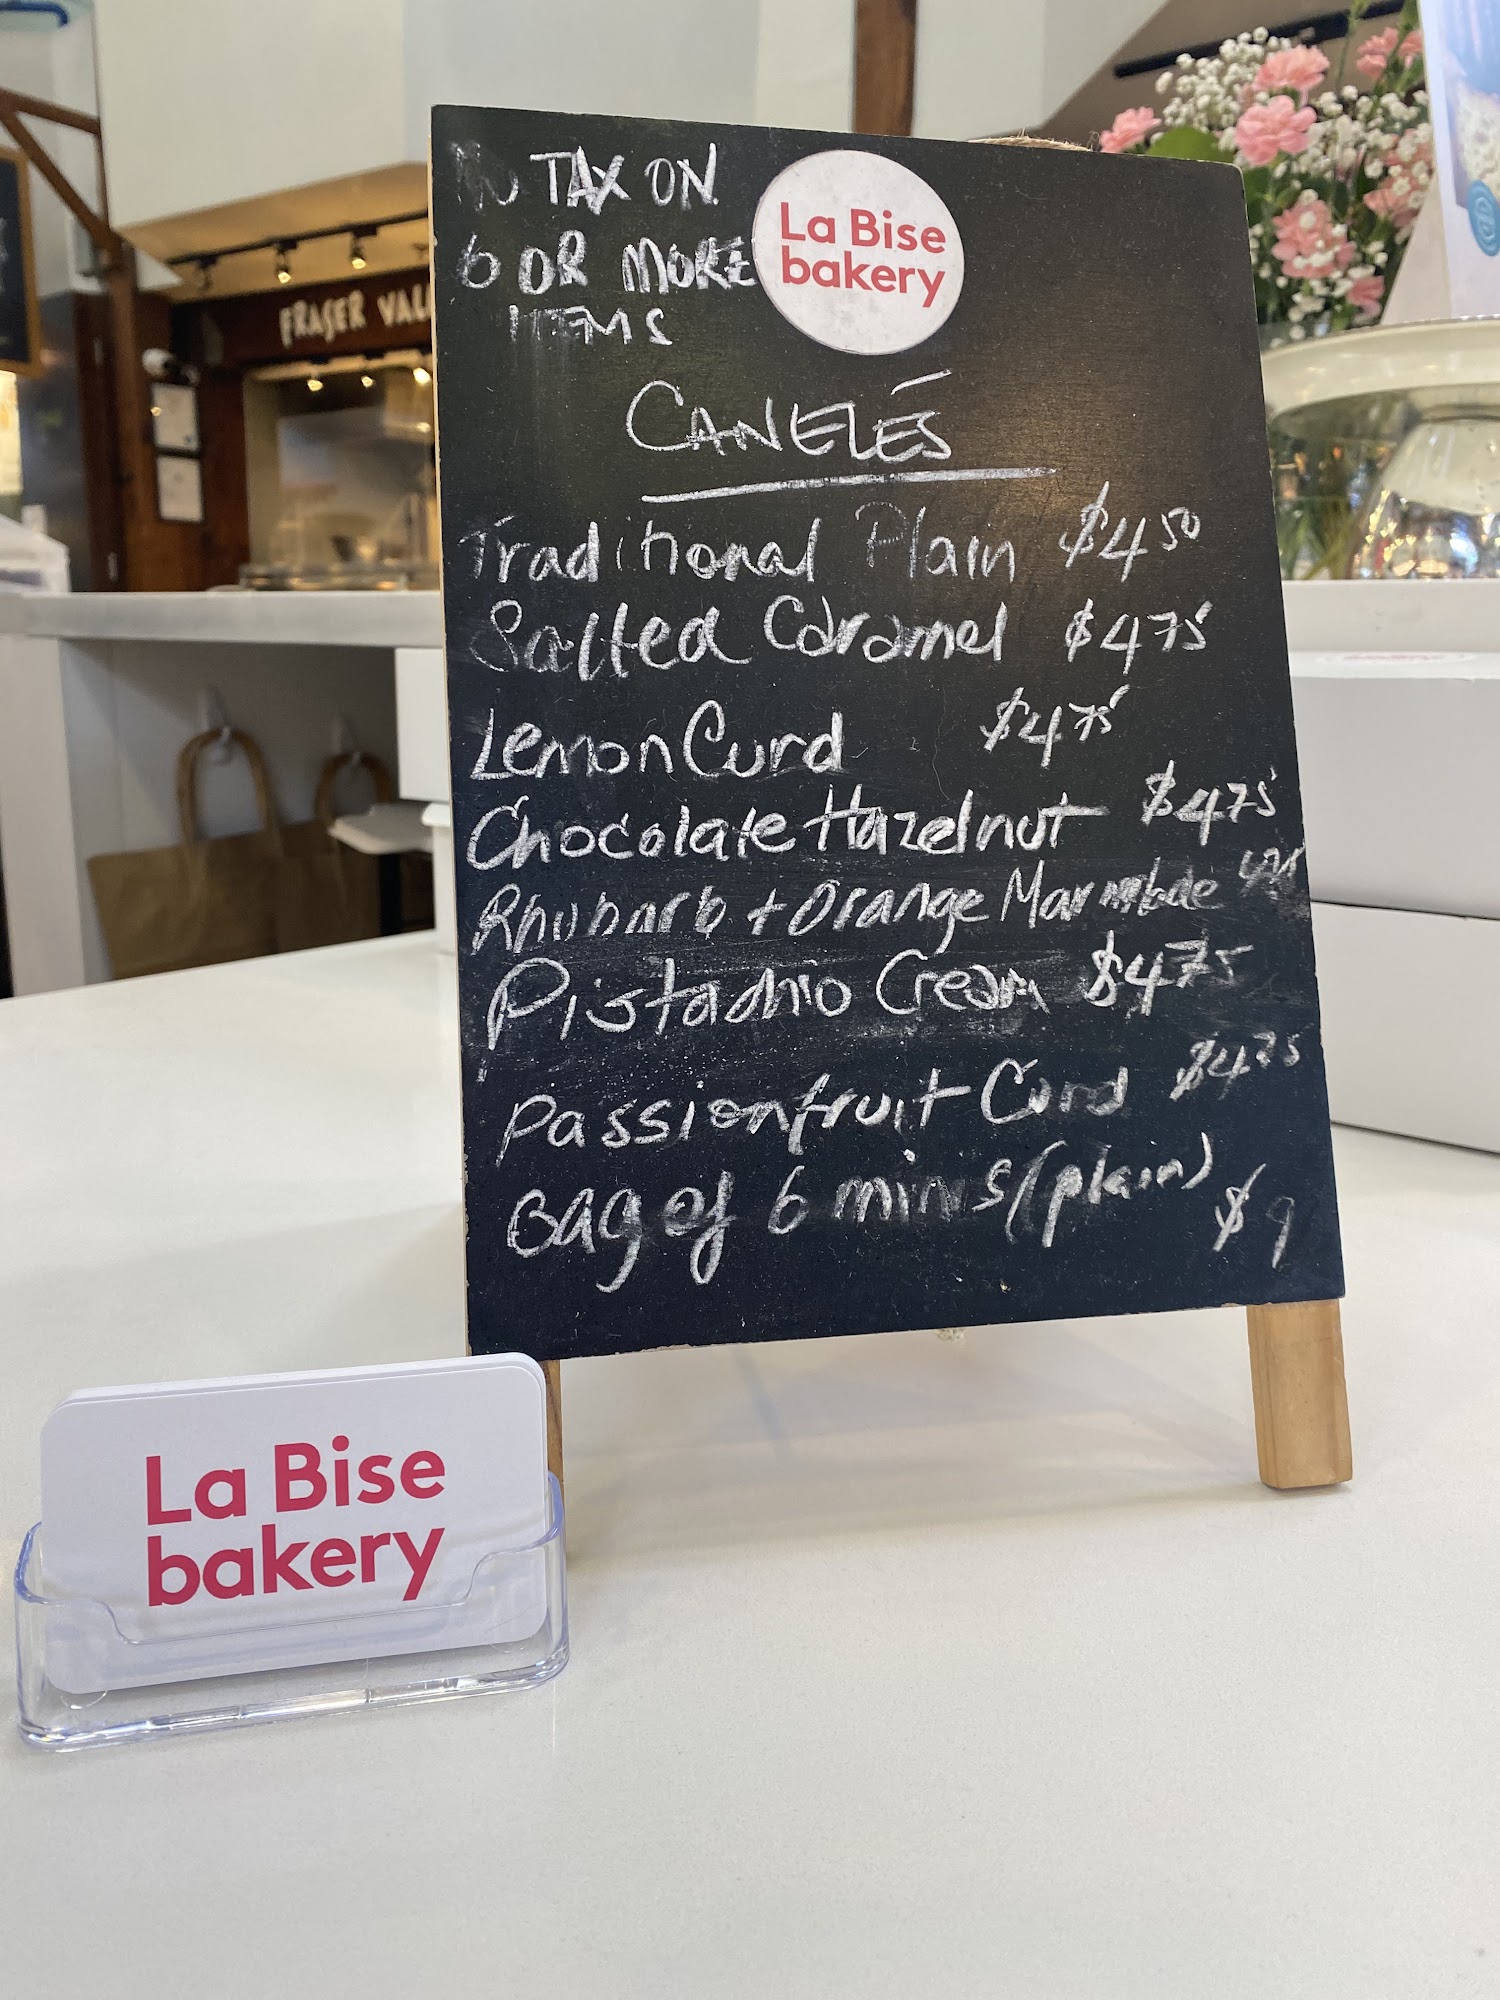 NO TAX ON
6 OR MORE
ITEMS
La Bise
bakery
CANELÉS
Traditional Plain $4 50
Salted Caramel $4 75
Lemon Curd $4 75
Chocolate Hazelnut $4 75
Rhubarb + Orange Marmalade 4 75
Pistachio Cream $4 75
Passionfruit Curd $4 75
Bag of 6 minis (plain) $9
FRASER VAL
La Bise
bakery